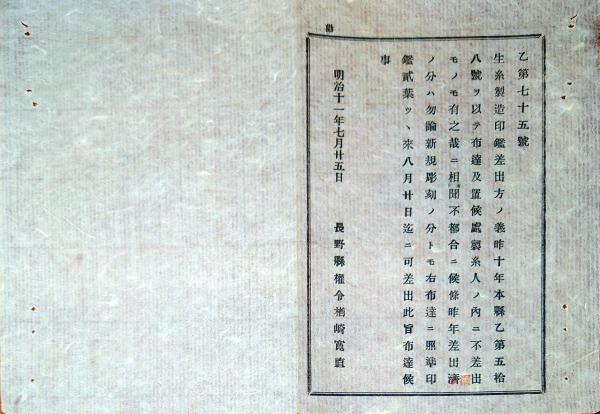 勧
乙第七十五號
生糸製造印鑑差出方ノ義昨十年本縣乙第五拾
八號ヲ以テ布達及置候處製糸人ノ內ニ不差出
モノモ有之哉ニ相聞不都合ニ候條昨年差出濟
ノ分ハ勿論新規彫刻ノ分トモ右布達ニ照準印
鑑貳葉ツヽ來八月廿日迄ニ可差出此旨布達候
事
明治十一年七月廿五日
長野縣權令楢崎寬直